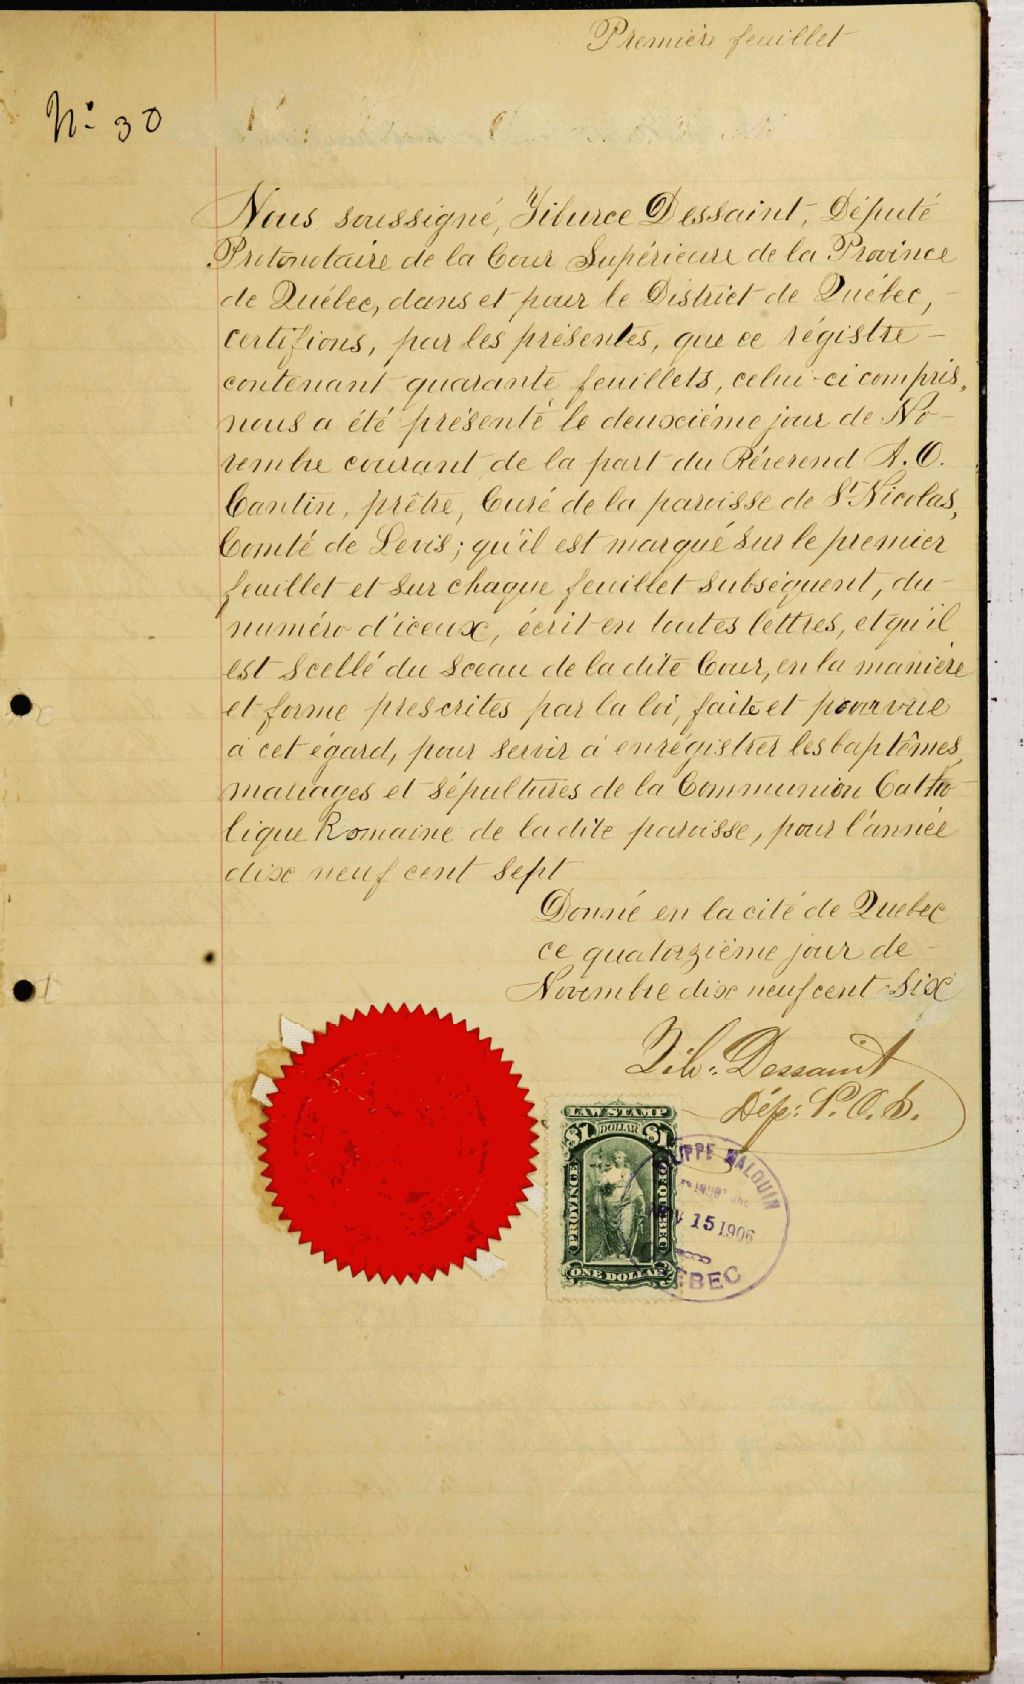 Première feuillet
No. 30
Nous soussigné, Tiburce Dessaint, Député
Protonotaire de la Cour Supérieure de la Province
de Québec, dans et pour le District de Québec, -
certifions, par les présentes, que ce régistre -
contenant quarante feuillets, celui-ci compris,
nous a été présenté le deuxième jour de No-
vembre courant de la part du Révérend A. O.
Cantin, prêtre, Curé de la paroisse de St. Nicolas,
Comté de Levis; qu'il est marqué sur le premier
feuillet et sur chaque feuillet subséquent, du -
numéro d'iceux, écrit en toutes lettres, et qu'il
est scellé du sceau de la dite Cour, en la manière
et forme prescrites par la loi, faite et pourvue
à cet égard, pour servir à enrégistrer les baptêmes,
mariages et sépultures de la Communion Catho-
lique Romaine de la dite paroisse, pour l'année
dix neuf cent sept
Donné en la cité de Québec
ce quatorzième jour de -
Novembre dix neuf cent six
Tib: Dessaint
Dép: P. C. S.
LAW STAMP
$1 DOLLAR $1
PROVINCE
OF QUEBEC
ONE DOLLAR
IPPE MALOUIN
15 1906
EBEC